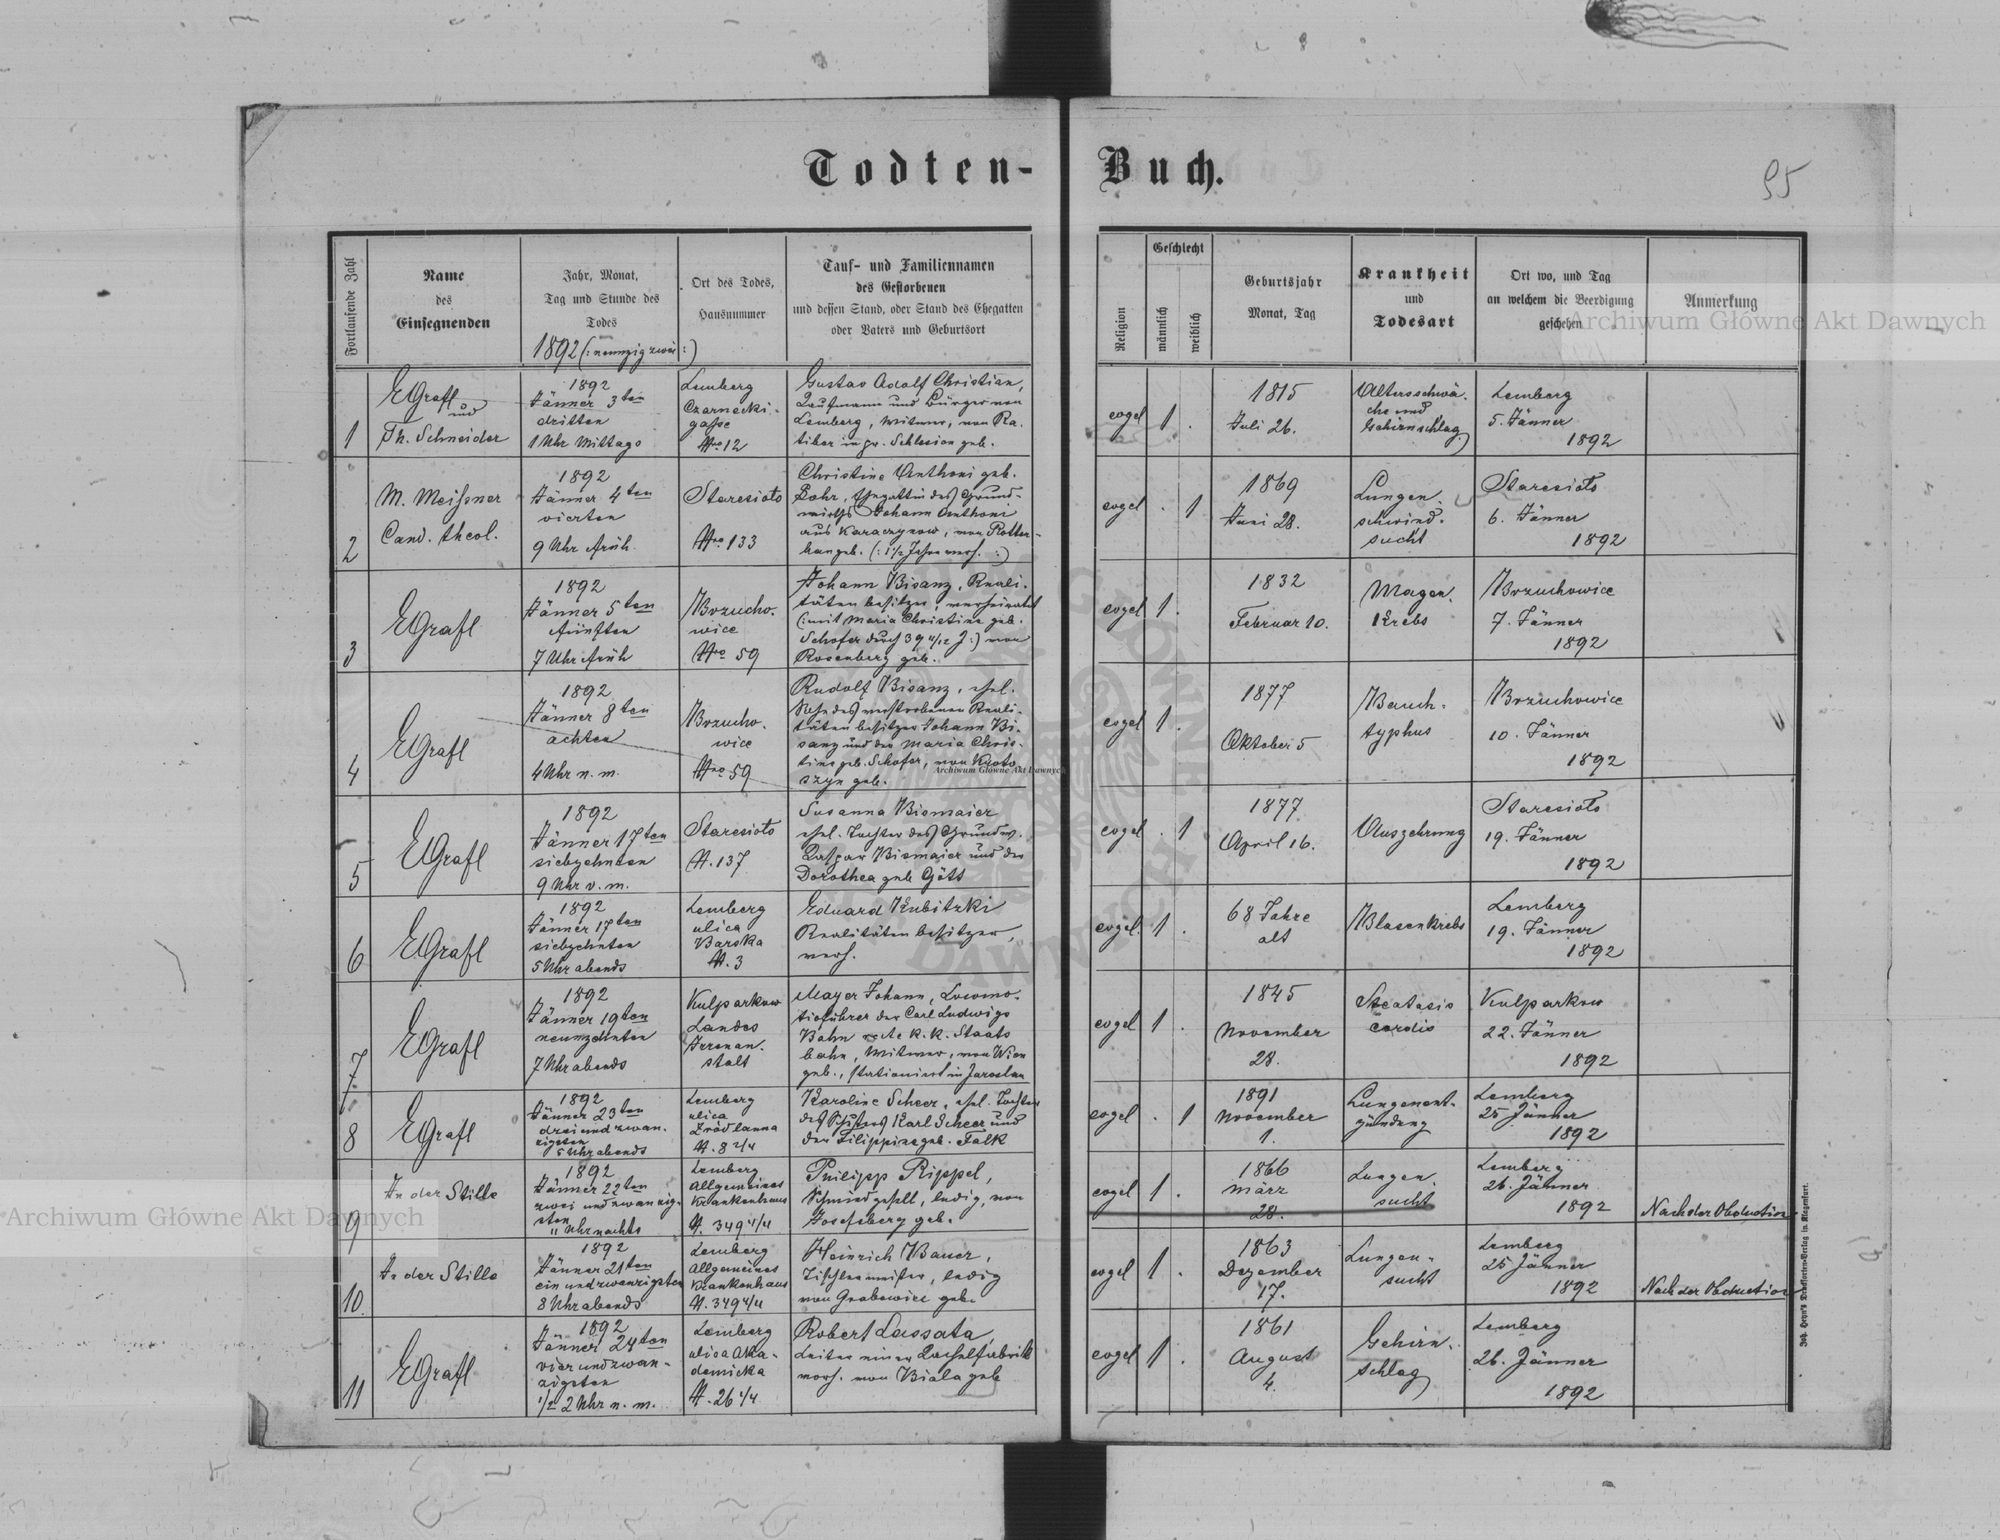 Todten-Buch.
95
Fortlaufende Zahl
Name
des
Einsegnenden
Jahr, Monat,
Tag und Stunde des
Todes
1892 (: neunzig zwei :)
Ort des Todes,
Hausnummer
Tauf- und Familiennamen
des Gestorbenen
und dessen Stand, oder Stand des Ehegatten
oder Vaters und Geburtsort
Religion
Geschlecht
männlich
weiblich
Geburtsjahr
Monat, Tag
Krankheit
und
Todesart
Ort wo, und Tag
an welchem die Beerdigung
geschehen
Anmerkung
1
EGrafl
und
Th. Schneider
1892
Jänner 3ten
dritten
1 Uhr Mittags
Lemberg
Czarnecki-
gasse
Nro 12
Gustav Adolf Christian,
Kaufmann und Bürger von
Lemberg, Witwer, von Ra-
tibor in pr. Schlesien geb.
evgel
1 .
1815
Juli 26.
Altersschwä-
che und
Gehirnschlag
Lemberg
5. Jänner
1892
2
M. Meissner
Cand. theol.
1892
Jänner 4ten
vierten
9 Uhr früh
Staresioto
Nro 133
Christine Anthoni geb.
Bohr, Ehegattin des Grund-
wirths Johann Anthoni
aus Karaczynow, von Rotten-
han geb. (: 1 1/2 Jahre verh. :)
evgel
. 1
1869
Juni 28.
Lungen-
schwind-
sucht
Staresioto
6. Jänner
1892
3
EGrafl
1892
Jänner 5ten
fünften
7 Uhr früh
Brzucho-
wice
Nro 59
Johann Bisanz, Reali-
tätenbesitzer, verheiratet
(: mit Maria Christine geb.
Schofer durch 39 4/12 J :) von
Rosenberg geb.
evgel
1 .
1832
Februar 10.
Magen-
Krebs
Brzuchowice
7. Jänner
1892
4
EGrafl
1892
Jänner 8ten
achten
4 Uhr n. m.
Brzucho-
wice
Nro 59
Rudolf Bisanz, ehel.
Sohn des verstorbenen Reali-
tätenbesitzer Johann Bi-
sanz und der Maria Chris-
tine geb. Schofer, von Kroto
szyn geb.
evgel
1 .
1877
Oktober 5
Bauch-
typhus
Brzuchowice
10. Jänner
1892
5
EGrafl
1892
Jänner 17ten
siebzehnten
9 Uhr v. m.
Staresioto
N. 137
Susanna Bismaier
ehel. Tochter des Grundw.
Kaspar Bismaier und der
Dorothea geb Gött
evgel
. 1
1877
April 16.
Auszehrung
Staresioto
19. Jänner
1892
6
EGrafl
1892
Jänner 17ten
siebzehnten
5 Uhr abends
Lemberg
ulica
Barska
N. 3
Eduard Kubitzki
Realitätenbesitzer,
verh.
evgel.
1 .
68 Jahre
alt
Blasenkrebs
Lemberg
19. Jänner
1892
7
EGrafl
1892
Jänner 19ten
neunzehnten
7 Uhr abends
Kulparkow
Landes
Irrenan-
stalt
Mayer Johann, Locomo-
tivführer der Carl Ludwigs
Bahn k. k. Staats
bahn, Witwer, von Wien
geb., stationiert in Jaroslau
evgel
1 .
1845
November
28.
Steatosis
cordis
Kulparkow
22. Jänner
1892
8
EGrafl
1892
Jänner 23ten
dreiundzwan-
zigsten
5 Uhr abends
Lemberg
ulica
Zródlanna
N. 8 2/4
Karoline Scheer, ehel. Tochter
des Karl Scheer und
der Filippine geb. Falk
evgel
. 1
1891
November
1.
Lungenent-
zündung
Lemberg
25 Jänner
1892
9
In der Stille
1892
Jänner 22ten
zwei und zwanzig-
sten
11 Uhr nachts
Lemberg
Allgemeines
Krankenhaus
N. 349 4/4
Philipp Rippel,
Schmiedgesell, ledig, von
Josefsberg geb.
evgel
1 .
1866
März
28.
Lungen-
sucht
Lemberg
26. Jänner
1892
Nach der Obduction
10.
In der Stille
1892
Jänner 21ten
ein und zwanzigsten
8 Uhr abends
Lemberg
Allgemeines
Krankenhaus
N. 349 4/4
Heinrich Bauer,
Tischlermeister, ledig
von Grabowice geb.
evgel
1 .
1863
Dezember
17.
Lungen-
sucht
Lemberg
25 Jänner
1892
Nach der Obduction
11
EGrafl
1892
Jänner 24ten
vier und zwan-
zigsten
1/2 2 Uhr n. m.
Lemberg
ulica Aka-
demicka
N. 26 1/4
Robert Lassata,
Leiter einer Kachelfabrik
verh. von Biala geb
evgel
1 .
1861
August
4.
Gehirn-
schlag
Lemberg
26. Jänner
1892
Joh. Heyn's Drucksorten-Verlag in Klagenfurt.
Archiwum Główne Akt Dawnych
Archiwum Główne Akt Dawnych
Archiwum Główne Akt Dawnych